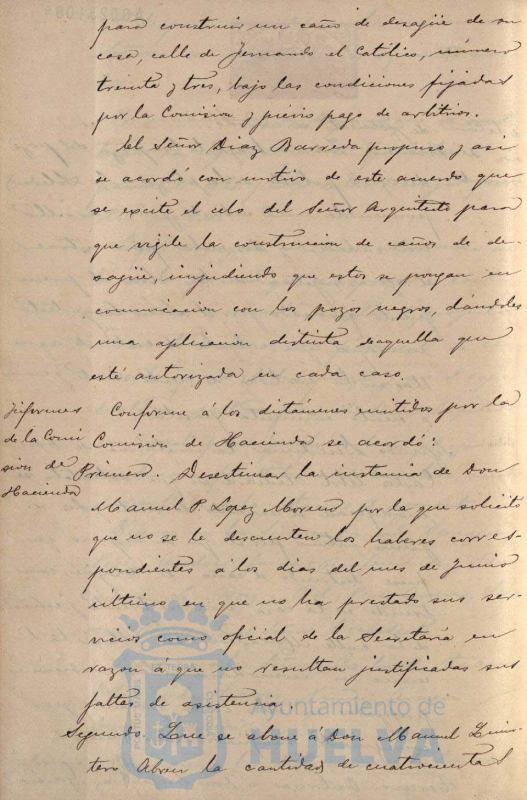 para construir un caño de desagüe de su
casa, calle de Fernando el Católico, número
treinta y tres, bajo las condiciones fijadas
por la Comision y previo pago de arbitrios.
El Señor Diaz Barreda propuso y asi
se acordó con motivo de este acuerdo que
se excite el celo del Señor Arquitecto para
que vigile la construccion de caños de de-
sagüe, impidiendo que estos se pongan en
comunicacion con los pozos negros, dándoles
una aplicacion distinta daquella que
esté autorizada en cada caso.
Informes
de la Comi
sion de
Hacienda
Conforme á los dictámenes emitidos por la
Comision de Hacienda se acordó:
Primero. Desestimar la instancia de Don
Manuel P. Lopez Moreno por la que solicitó
que no se le descuenten los haberes corres-
pondientes á los dias del mes de Junio
último en que no ha prestado sus ser-
vicios como oficial de la Secretaría en
razon á que no resultan justificadas sus
faltas de asistencia.
Segundo. Que se abone á Don Manuel Quin-
tero Abreu la cantidad de cuatrocientas
Ayuntamiento de
HUELVA